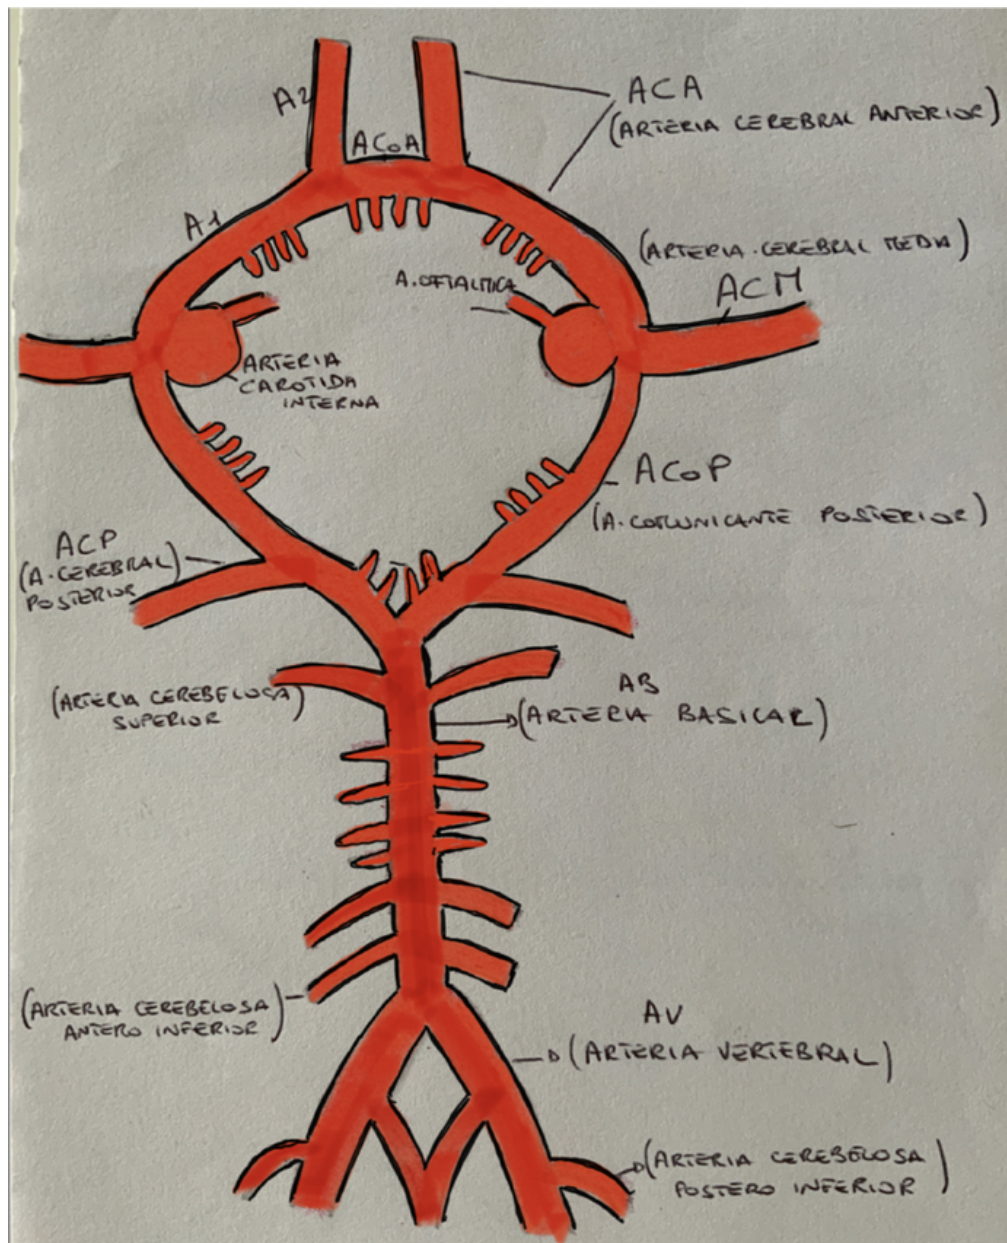 A2
ACA
(ARTERIA CEREBRAL ANTERIOR)
ACoA
A1
(ARTERIA CEREBRAL MEDIA)
A. OFTALMICA
ACM
ARTERIA
CAROTIDA
INTERNA
ACoP
(A. COMUNICANTE POSTERIOR)
ACP
(A. CEREBRAL)
POSTERIOR
(ARTERIA CEREBELOSA)
SUPERIOR
AB
(ARTERIA BASILAR)
(ARTERIA CEREBELOSA
ANTERO INFERIOR)
AV
(ARTERIA VERTEBRAL)
(ARTERIA CEREBELOSA
POSTERO INFERIOR)